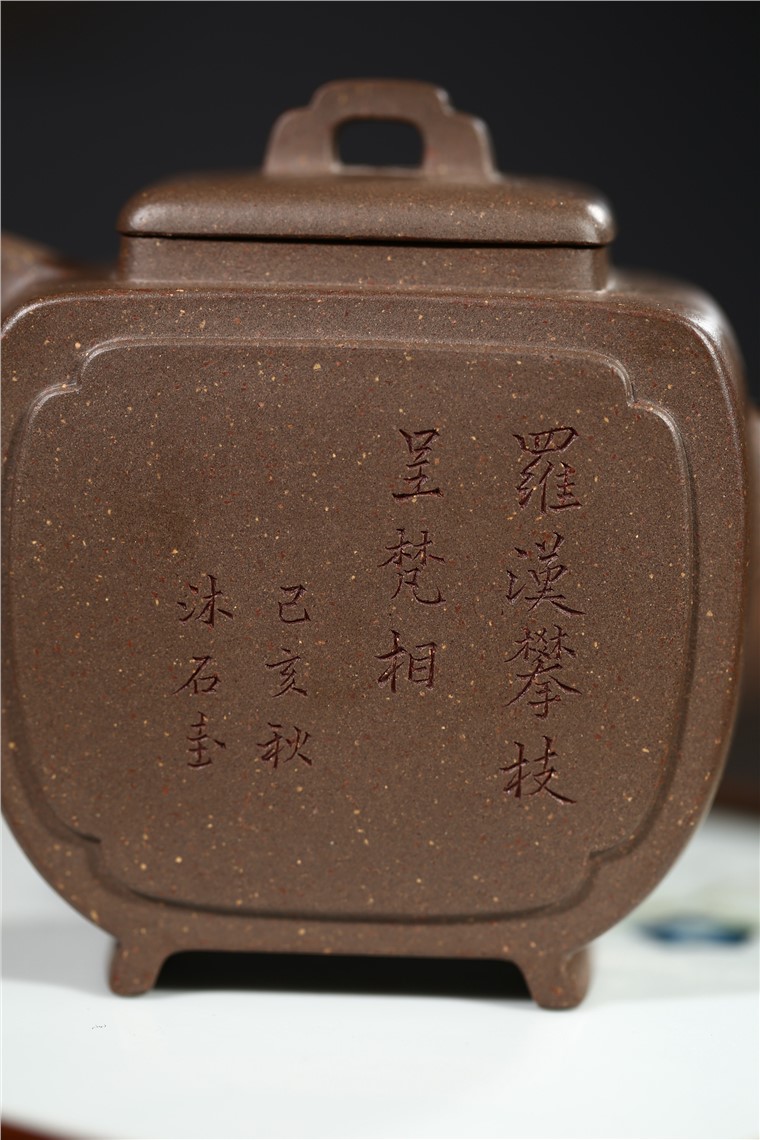 羅漢攀枝
呈梵相
己亥秋
沐石畫